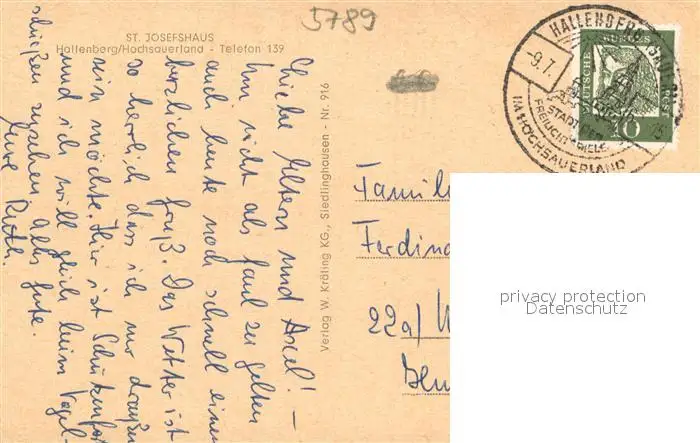 5789
ST. JOSEFSHAUS
Hallenberg/Hochsauerland - Telefon 139
Liebe Eltern und Axel! –
Um nicht als faul zu gelten
auch heute noch schnell einen
herzlichen Gruß. Das Wetter ist
so herrlich, dass ich nur draußen
sein möchte. Hier ist Schützenfest
und ich will gleich beim Vogel-
schießen zusehen. Alles Gute.
Eure Ruth.
Verlag W. Kräling KG., Siedlinghausen - Nr. 916
HALLENBERG (SAUERL
-9.7.
15
STADT DER
FREILICHTSPIELE
IM HOCHSAUERLAND
DEUTSCHE BUNDESPOST
10
Famili
Ferdin
22a/
privacy protection
Datenschutz